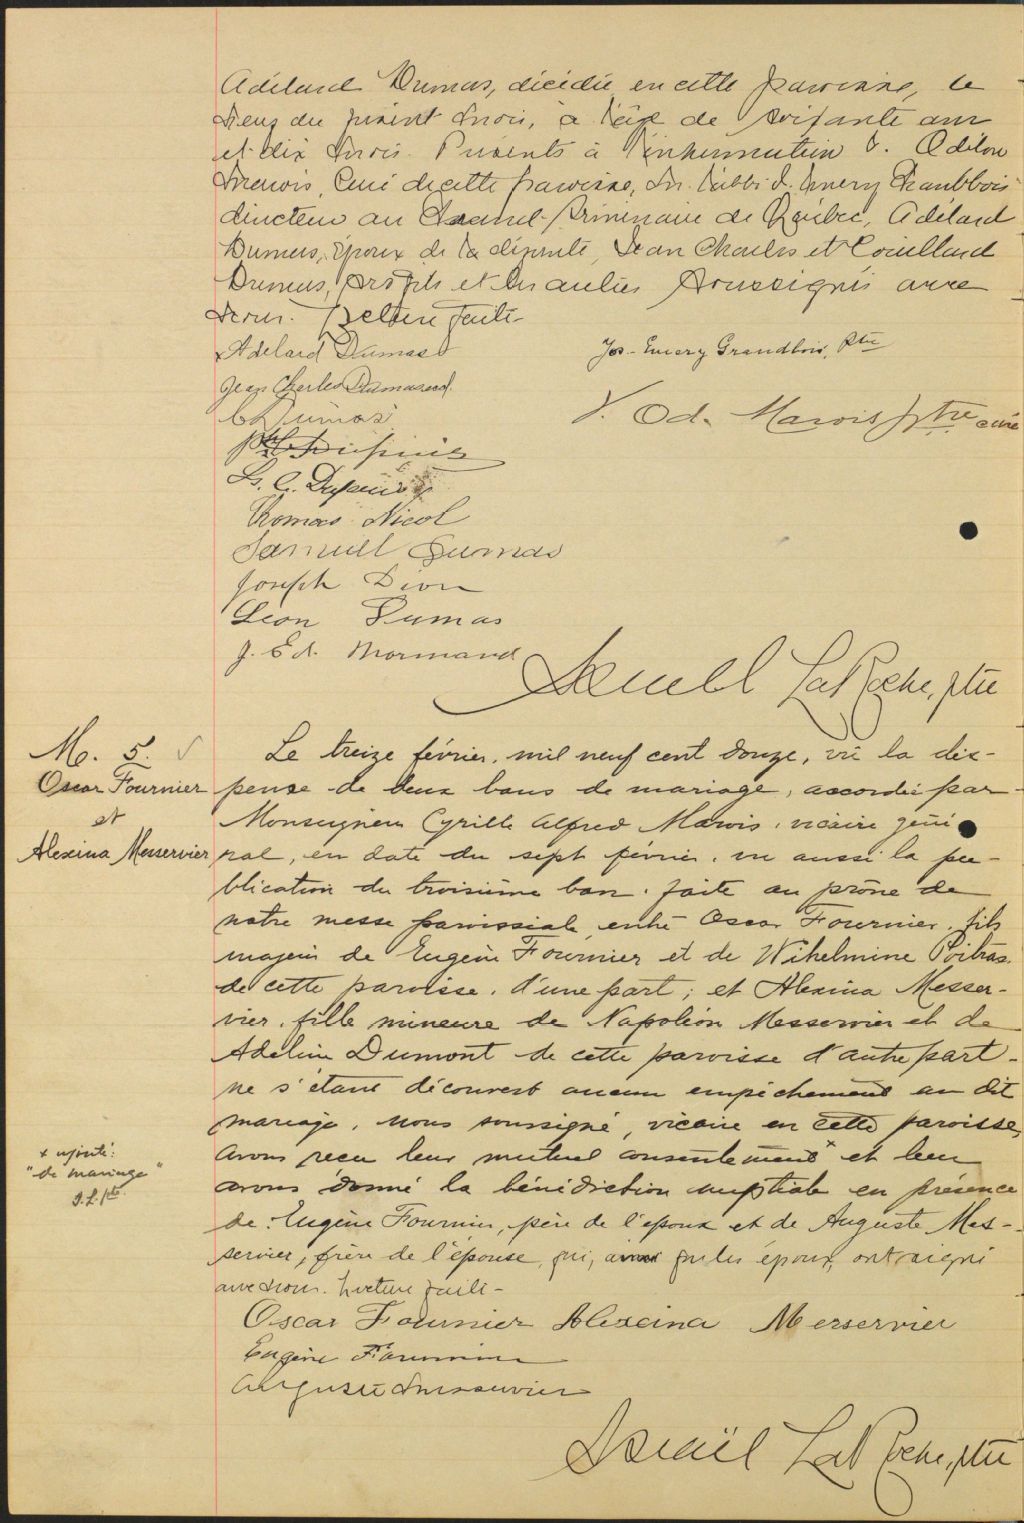 Adélard Dumas, décédée en cette paroisse, le
deux du présent mois, à l'âge de soixante ans
et dix mois. Présents à l'inhumation V. Odilon
Marois, Curé de cette paroisse, Mr. l'abbé J. Emery Grandbois
directeur au Grand Séminaire de Québec, Adélard
Dumas, époux de la défunte, Jean Charles et Couillard
Dumas, ses fils et autres soussignés avec
nous. Lecture faite-
Adelard Dumas
Jos-Emery Grandbois, Ptre
Jean Charles Dumas
C Dumas
V. Od. Marois ptre curé
Ls. C. Dupuis
Thomas Nicol
Samuel Dumas
Joseph Dion
Léon Dumas
J. Ed. Normand
Israël LaRoche, ptre
M. 5.
Oscar Fournier
et
Alexina Messervier
Le treize février, mil neuf cent douze, vu la dis-
pense de deux bans de mariage, accordée par
Monseigneur Cyrille Alfred Marois, vicaire géné
ral, en date du sept février, vu aussi la pu-
blication du troisième ban, faite au prône de
notre messe paroissiale, entre Oscar Fournier, fils
majeur de Eugène Fournier et de Wihelmine Poitras
de cette paroisse, d'une part; et Alexina Messer-
vier, fille mineure de Napoléon Messervier et de
Adeline Dumont de cette paroisse d'autre part-
ne s'étant découvert aucun empêchement au dit
mariage, nous soussigné, vicaire en cette paroisse,
avons reçu leur mutuel consentement x et leur
avons donné la bénédiction nuptiale en présence
de Eugène Fournier, père de l'époux et de Auguste Mes-
servier, frère de l'épouse, qui, ainsi que les époux, ont signé
avec nous. Lecture faite-
x ajouté:
"de mariage"
I. L. ptre.
Oscar Fournier Alexina Merservier
Eugène Fournier
Auguste Messervier
Israël LaRoche, ptre